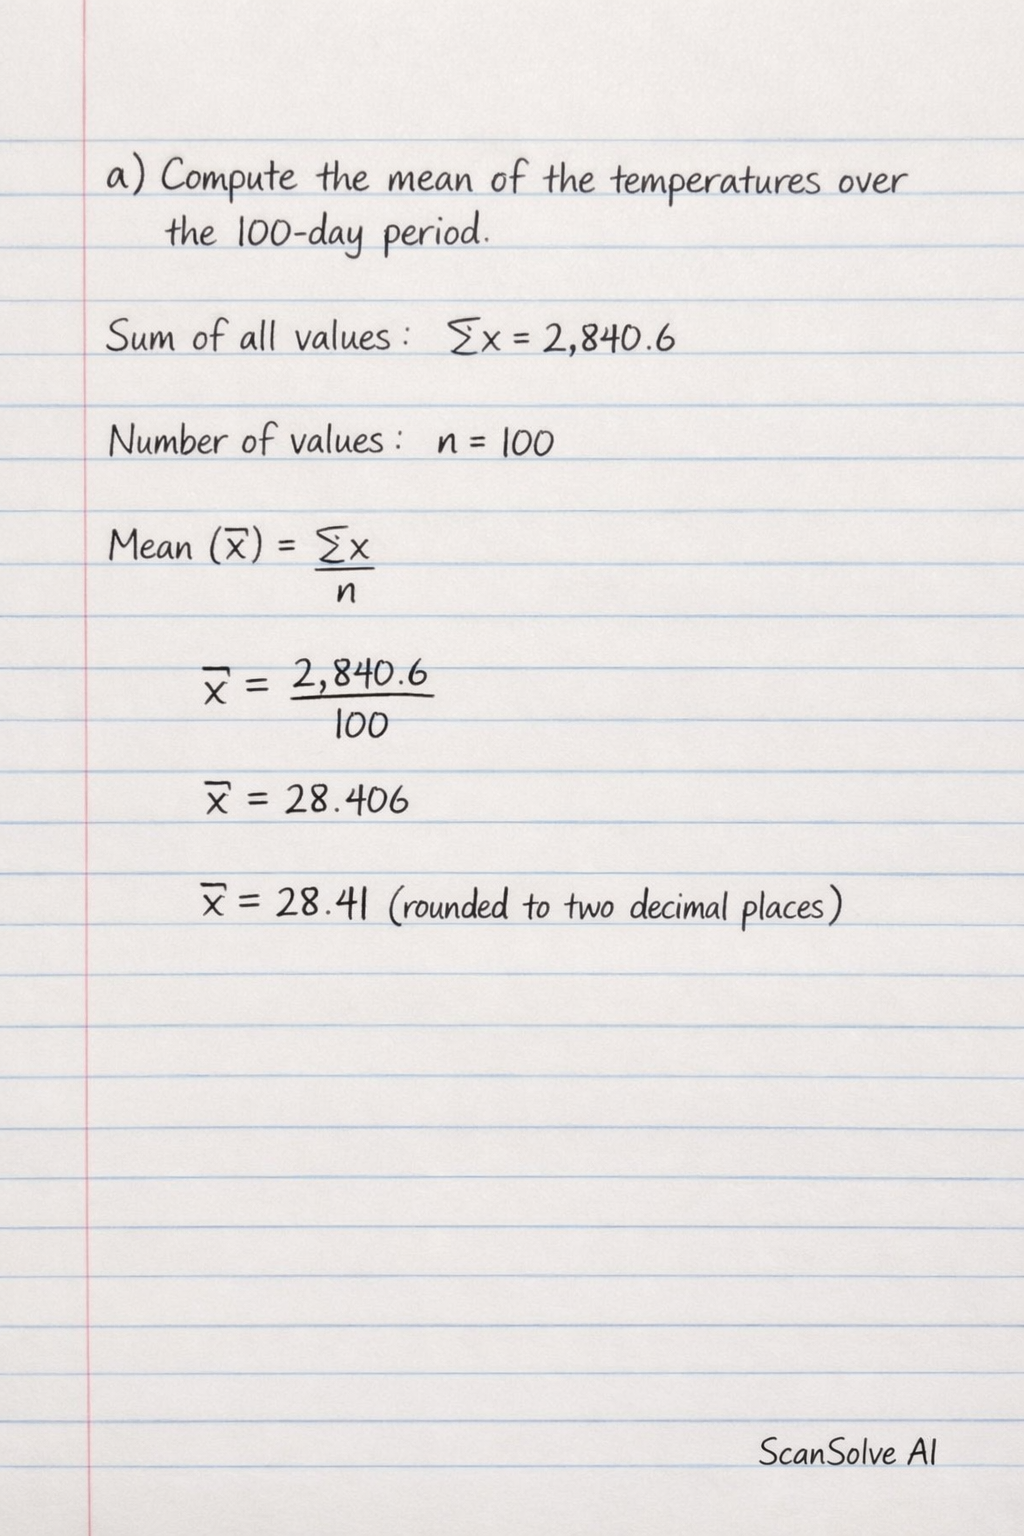 a) Compute the mean of the temperatures over
the 100-day period.
Sum of all values: ∑x = 2,840.6
Number of values: n = 100
Mean (x̅) = ∑x
n
x̅ = 2,840.6
100
x̅ = 28.406
x̅ = 28.41 (rounded to two decimal places)
ScanSolve AI